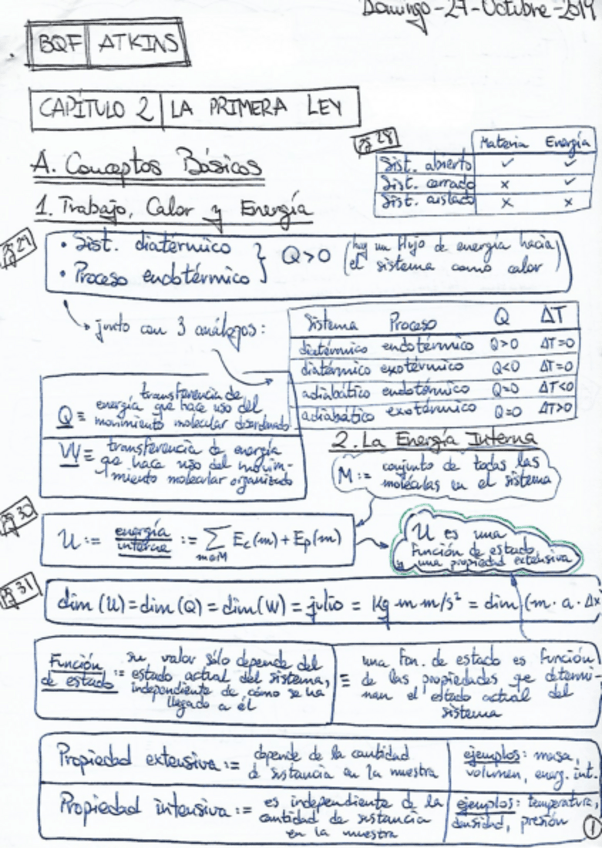 Domingo-27-Octubre-2019
BQF ATKINS
CAPÍTULO 2 LA PRIMERA LEY
A. Conceptos Básicos
Pg 28
Materia Energía
Sist. abierto ✓ ✓
Sist. cerrado x ✓
Sist. aislado x x
1. Trabajo, Calor y Energía
Pg 29
• Sist. diatérmico
• Proceso endotérmico
} Q>0 (hay un flujo de energía hacia
el sistema como calor)
junto con 3 análogos:
Sistema Proceso Q ΔT
diatérmico endotérmico Q>0 ΔT=0
diatérmico exotérmico Q<0 ΔT=0
adiabático endotérmico Q=0 ΔT<0
adiabático exotérmico Q=0 ΔT>0
transferencia de
Q ≡ energía que hace uso del
movimiento molecular desordenado
W ≡ transferencia de energía
que hace uso del movi-
miento molecular organizado
2. La Energía Interna
M := conjunto de todas las
moléculas en el sistema
Pg 30
U := energía interna := ∑ m∈M Ec(m) + Ep(m)
U es una
Función de estado
y una propiedad extensiva
Pg 31
dim (U) = dim (Q) = dim (W) = julio = Kg m m/s² = dim (m · a · Δx
Función de estado := su valor sólo depende del
estado actual del sistema,
independiente de cómo se ha
llegado a él
≡ una fon. de estado es función
de las propiedades qe determi-
nan el estado actual del
sistema
Propiedad extensiva := depende de la cantidad
d sustancia en la muestra
ejemplos: masa,
volumen, energ. int.
Propiedad intensiva := es independiente de la
cantidad de sustancia
en la muestra
ejemplos: temperatura,
densidad, presión
1